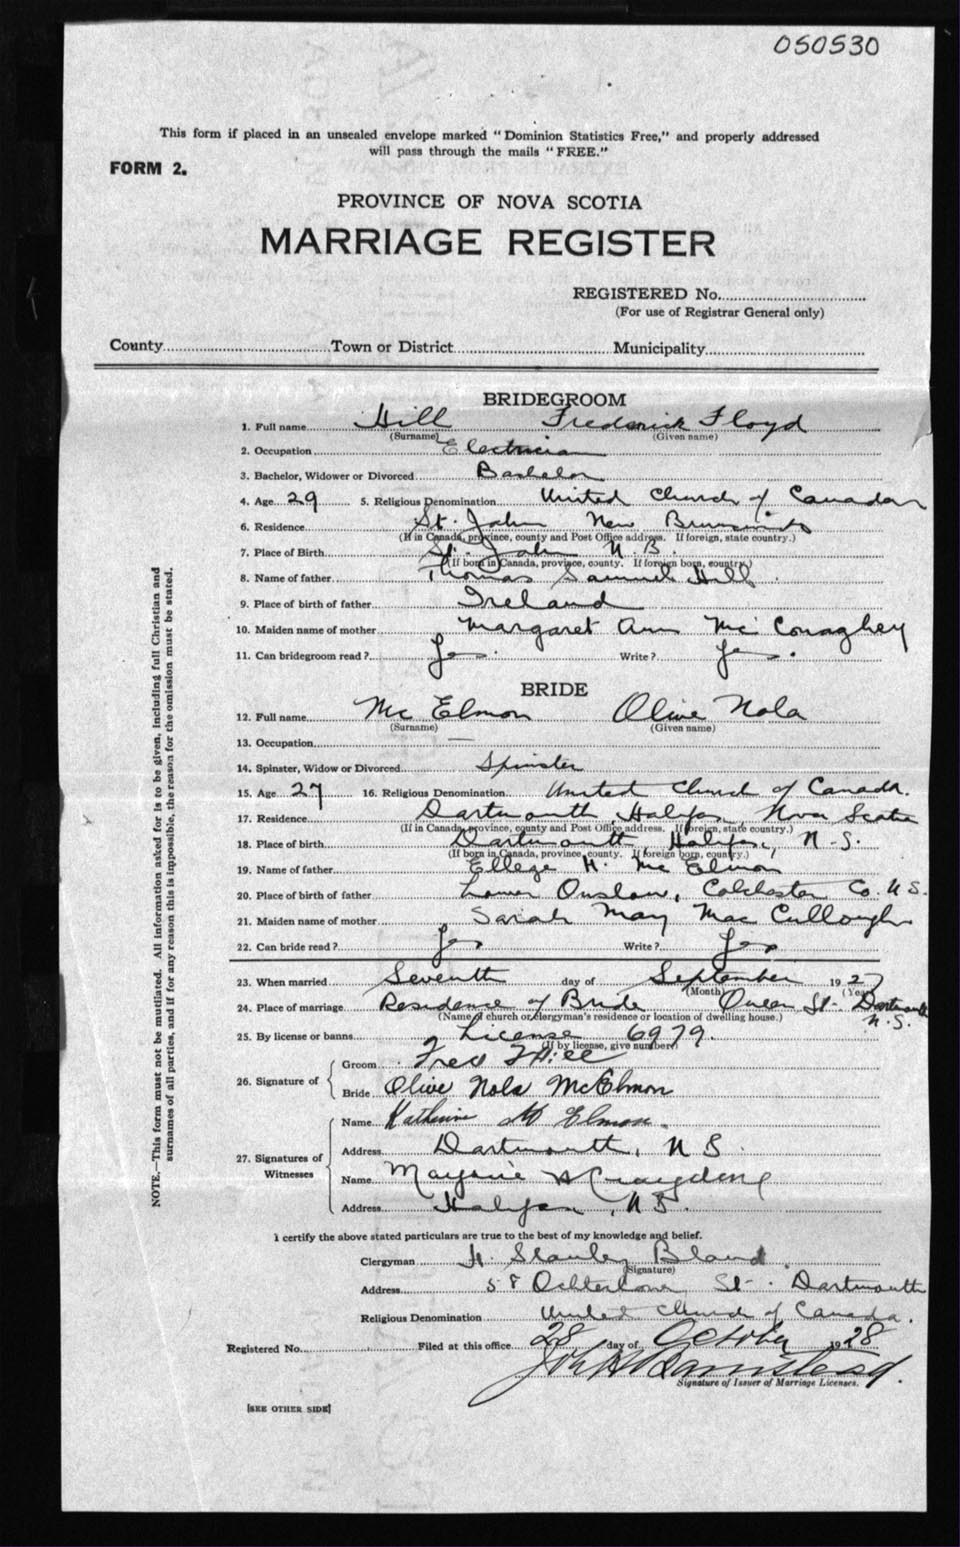 050530
This form if placed in an unsealed envelope marked "Dominion Statistics Free," and properly addressed
will pass through the mails "FREE."
FORM 2.
PROVINCE OF NOVA SCOTIA
MARRIAGE REGISTER
REGISTERED No.
(For use of Registrar General only)
County Town or District Municipality
BRIDEGROOM
1. Full name Hill Frederick Floyd
(Surname) (Given name)
2. Occupation Electrician
3. Bachelor, Widower or Divorced Bachelor
4. Age 29 5. Religious Denomination United Church of Canada
6. Residence St. John New Brunswick
(If in Canada, province, county and Post Office address. If foreign, state country.)
7. Place of Birth St. John N.B.
(If born in Canada, province, county. If foreign born, country.)
8. Name of father Thomas Samuel Hill
9. Place of birth of father Ireland
10. Maiden name of mother Margaret Ann McConaghey
11. Can bridegroom read? Yes. Write? Yes.
BRIDE
12. Full name McElmon Olive Nola
(Surname) (Given name)
13. Occupation —
14. Spinster, Widow or Divorced Spinster
15. Age 27 16. Religious Denomination United Church of Canada.
17. Residence Dartmouth, Halifax, Nova Scotia
(If in Canada, province, county and Post Office address. If foreign, state country.)
18. Place of birth Dartmouth Halifax, N.S.
(If born in Canada, province, county. If foreign born, country.)
19. Name of father H. McElmon
20. Place of birth of father Lower Onslow, Colchester Co. N.S.
21. Maiden name of mother Sarah May MacCullough
22. Can bride read? Yes Write? Yes
23. When married Seventh day of September 192
(Month) (Year)
24. Place of marriage Residence of Bride Queen St. Dartmouth
N.S.
(Name of church or clergyman's residence or location of dwelling house.)
25. By license or banns License 6979.
(If by license, give number)
26. Signature of
Groom Fred F Hill
Bride Olive Nola McElmon
27. Signatures of Witnesses
Name Katherine McElmon.
Address Dartmouth, N S
Name Marjorie
Address Halifax, N.S.
I certify the above stated particulars are true to the best of my knowledge and belief.
Clergyman H. Stanley Bland
(Signature)
Address 58 Ochterloney St. Dartmouth
Religious Denomination United Church of Canada.
Registered No. Filed at this office 28 day of October 1928
Signature of Issuer of Marriage Licenses.
[SEE OTHER SIDE]
NOTE.—This form must not be mutilated. All information asked for is to be given, including full Christian and
surnames of all parties, and if for any reason this is impossible, the reason for the omission must be stated.